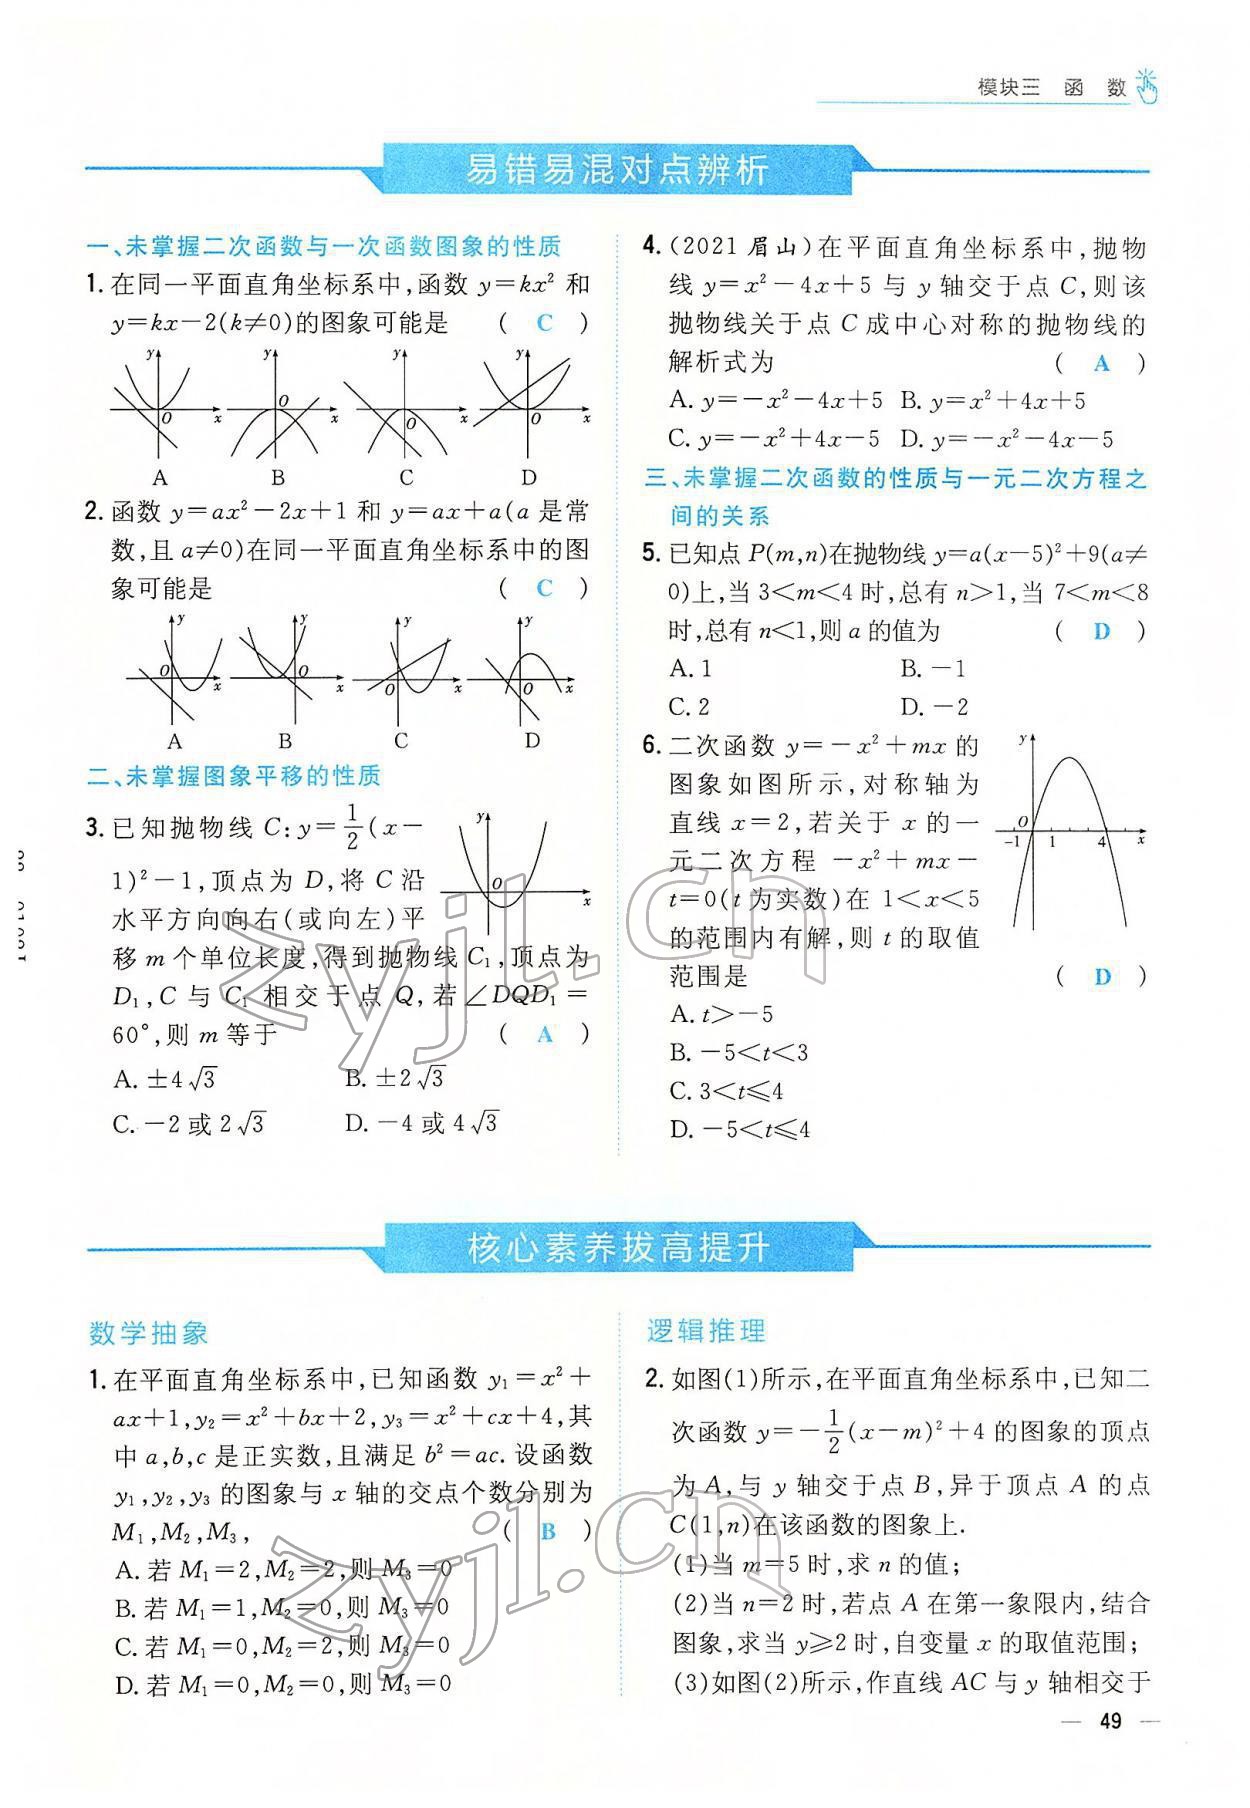 模块三 函 数
易错易混对点辨析
一、未掌握二次函数与一次函数图象的性质
1. 在同一平面直角坐标系中,函数 y=kx² 和
y=kx-2(k≠0)的图象可能是 ( C )
y
O
x
y
O
x
y
O
x
y
O
x
A B C D
2. 函数 y=ax²-2x+1 和 y=ax+a(a 是常
数,且 a≠0)在同一平面直角坐标系中的图
象可能是 ( C )
y
O
x
y
O
x
y
O
x
y
O
x
A B C D
二、未掌握图象平移的性质
3. 已知抛物线 C:y=1/2(x-
1)²-1,顶点为 D,将 C 沿
水平方向向右(或向左)平
移 m 个单位长度,得到抛物线 C₁,顶点为
D₁,C 与 C₁ 相交于点 Q,若∠DQD₁=
60°,则 m 等于 ( A )
y
O
x
A. ±4√3 B. ±2√3
C. -2 或 2√3 D. -4 或 4√3
4. (2021 眉山)在平面直角坐标系中,抛物
线 y=x²-4x+5 与 y 轴交于点 C,则该
抛物线关于点 C 成中心对称的抛物线的
解析式为 ( A )
A. y=-x²-4x+5 B. y=x²+4x+5
C. y=-x²+4x-5 D. y=-x²-4x-5
三、未掌握二次函数的性质与一元二次方程之
间的关系
5. 已知点 P(m,n)在抛物线 y=a(x-5)²+9(a≠
0)上,当 3<m<4 时,总有 n>1,当 7<m<8
时,总有 n<1,则 a 的值为 ( D )
A. 1 B. -1
C. 2 D. -2
6. 二次函数 y=-x²+mx 的
图象如图所示,对称轴为
直线 x=2,若关于 x 的一
元二次方程 -x²+mx-
t=0(t 为实数)在 1<x<5
的范围内有解,则 t 的取值
范围是 ( D )
y
O
-1 1 4 x
A. t>-5
B. -5<t<3
C. 3<t≤4
D. -5<t≤4
zyjl.cn
核心素养拔高提升
数学抽象
1. 在平面直角坐标系中,已知函数 y₁=x²+
ax+1,y₂=x²+bx+2,y₃=x²+cx+4,其
中 a,b,c 是正实数,且满足 b²=ac. 设函数
y₁,y₂,y₃ 的图象与 x 轴的交点个数分别为
M₁,M₂,M₃, ( B )
A. 若 M₁=2,M₂=2,则 M₃=0
B. 若 M₁=1,M₂=0,则 M₃=0
C. 若 M₁=0,M₂=2,则 M₃=0
D. 若 M₁=0,M₂=0,则 M₃=0
逻辑推理
2. 如图(1)所示,在平面直角坐标系中,已知二
次函数 y=-1/2(x-m)²+4 的图象的顶点
为 A,与 y 轴交于点 B,异于顶点 A 的点
C(1,n)在该函数的图象上.
(1)当 m=5 时,求 n 的值;
(2)当 n=2 时,若点 A 在第一象限内,结合
图象,求当 y≥2 时,自变量 x 的取值范围;
(3)如图(2)所示,作直线 AC 与 y 轴相交于
zyjl.cn
— 49 —